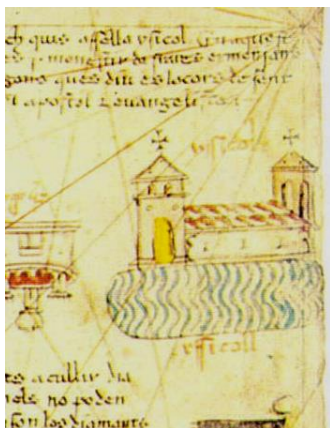 ch quis apella yssicol En aquest
es j monestir de frares ermenians
gons ques diu es lo cors de sent
apostol e evangelista
yssicol
yssicoll
acullir dia
els no poden
son los diamants